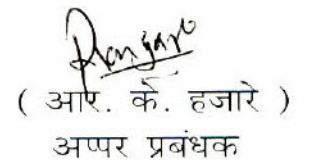 ( आर. के. हजारे )
अप्पर प्रबंधक